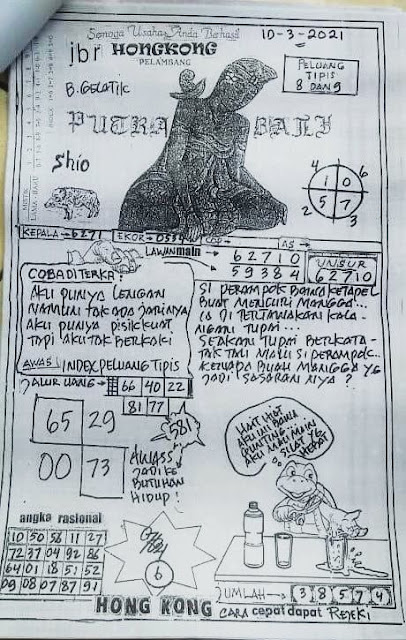 Semoga Usaha Anda Berhasil
10-3-2021
jbr HONGKONG
PELAMBANG
PELUANG
TIPIS
8 DAN 9
B. GELATIK
PUTRA BALI
Shio
4 6
1 0
5 7
2 3
KEPALA→6271 EKOR→ COP→ AS→
LAWAN main
62710
59384
UNSUR
62710
COBA DITERKA
AKU PUNYA LENGAN
NAMUN TAK ADA JARINYA
AKU PUNYA FISIK KUAT
TAPI AKU TAK BERKAKI
AWAS INDEX PELUANG TIPIS
SI PERAMPOK BAWA KETAPEL
BUAT MENCURI MANGGA...
IA DI TERTAWAKAN KALA-
NGAN TUPAI...
SEAKAN TUPAI BERKATA-
TAK TAU MALU SI PERAMPOK...
KENAPA BUAH MANGGA YG
JADI SASARAN NYA ?
JALUR UANG → 66 40 22
81 77
65 29
00 73
581
AWASS
JADI KE
BUTUHAN
HIDUP!
AKU MAU MAIN
SILAT
HEBAT
angka rasional
10 50 58 11 27
72 37 04 92 86
64 01 18 51 52
09 08 07 87 91
6
JUMLAH→ 3 8 5 7 4
HONG KONG CARA cepat dapat REJEKI